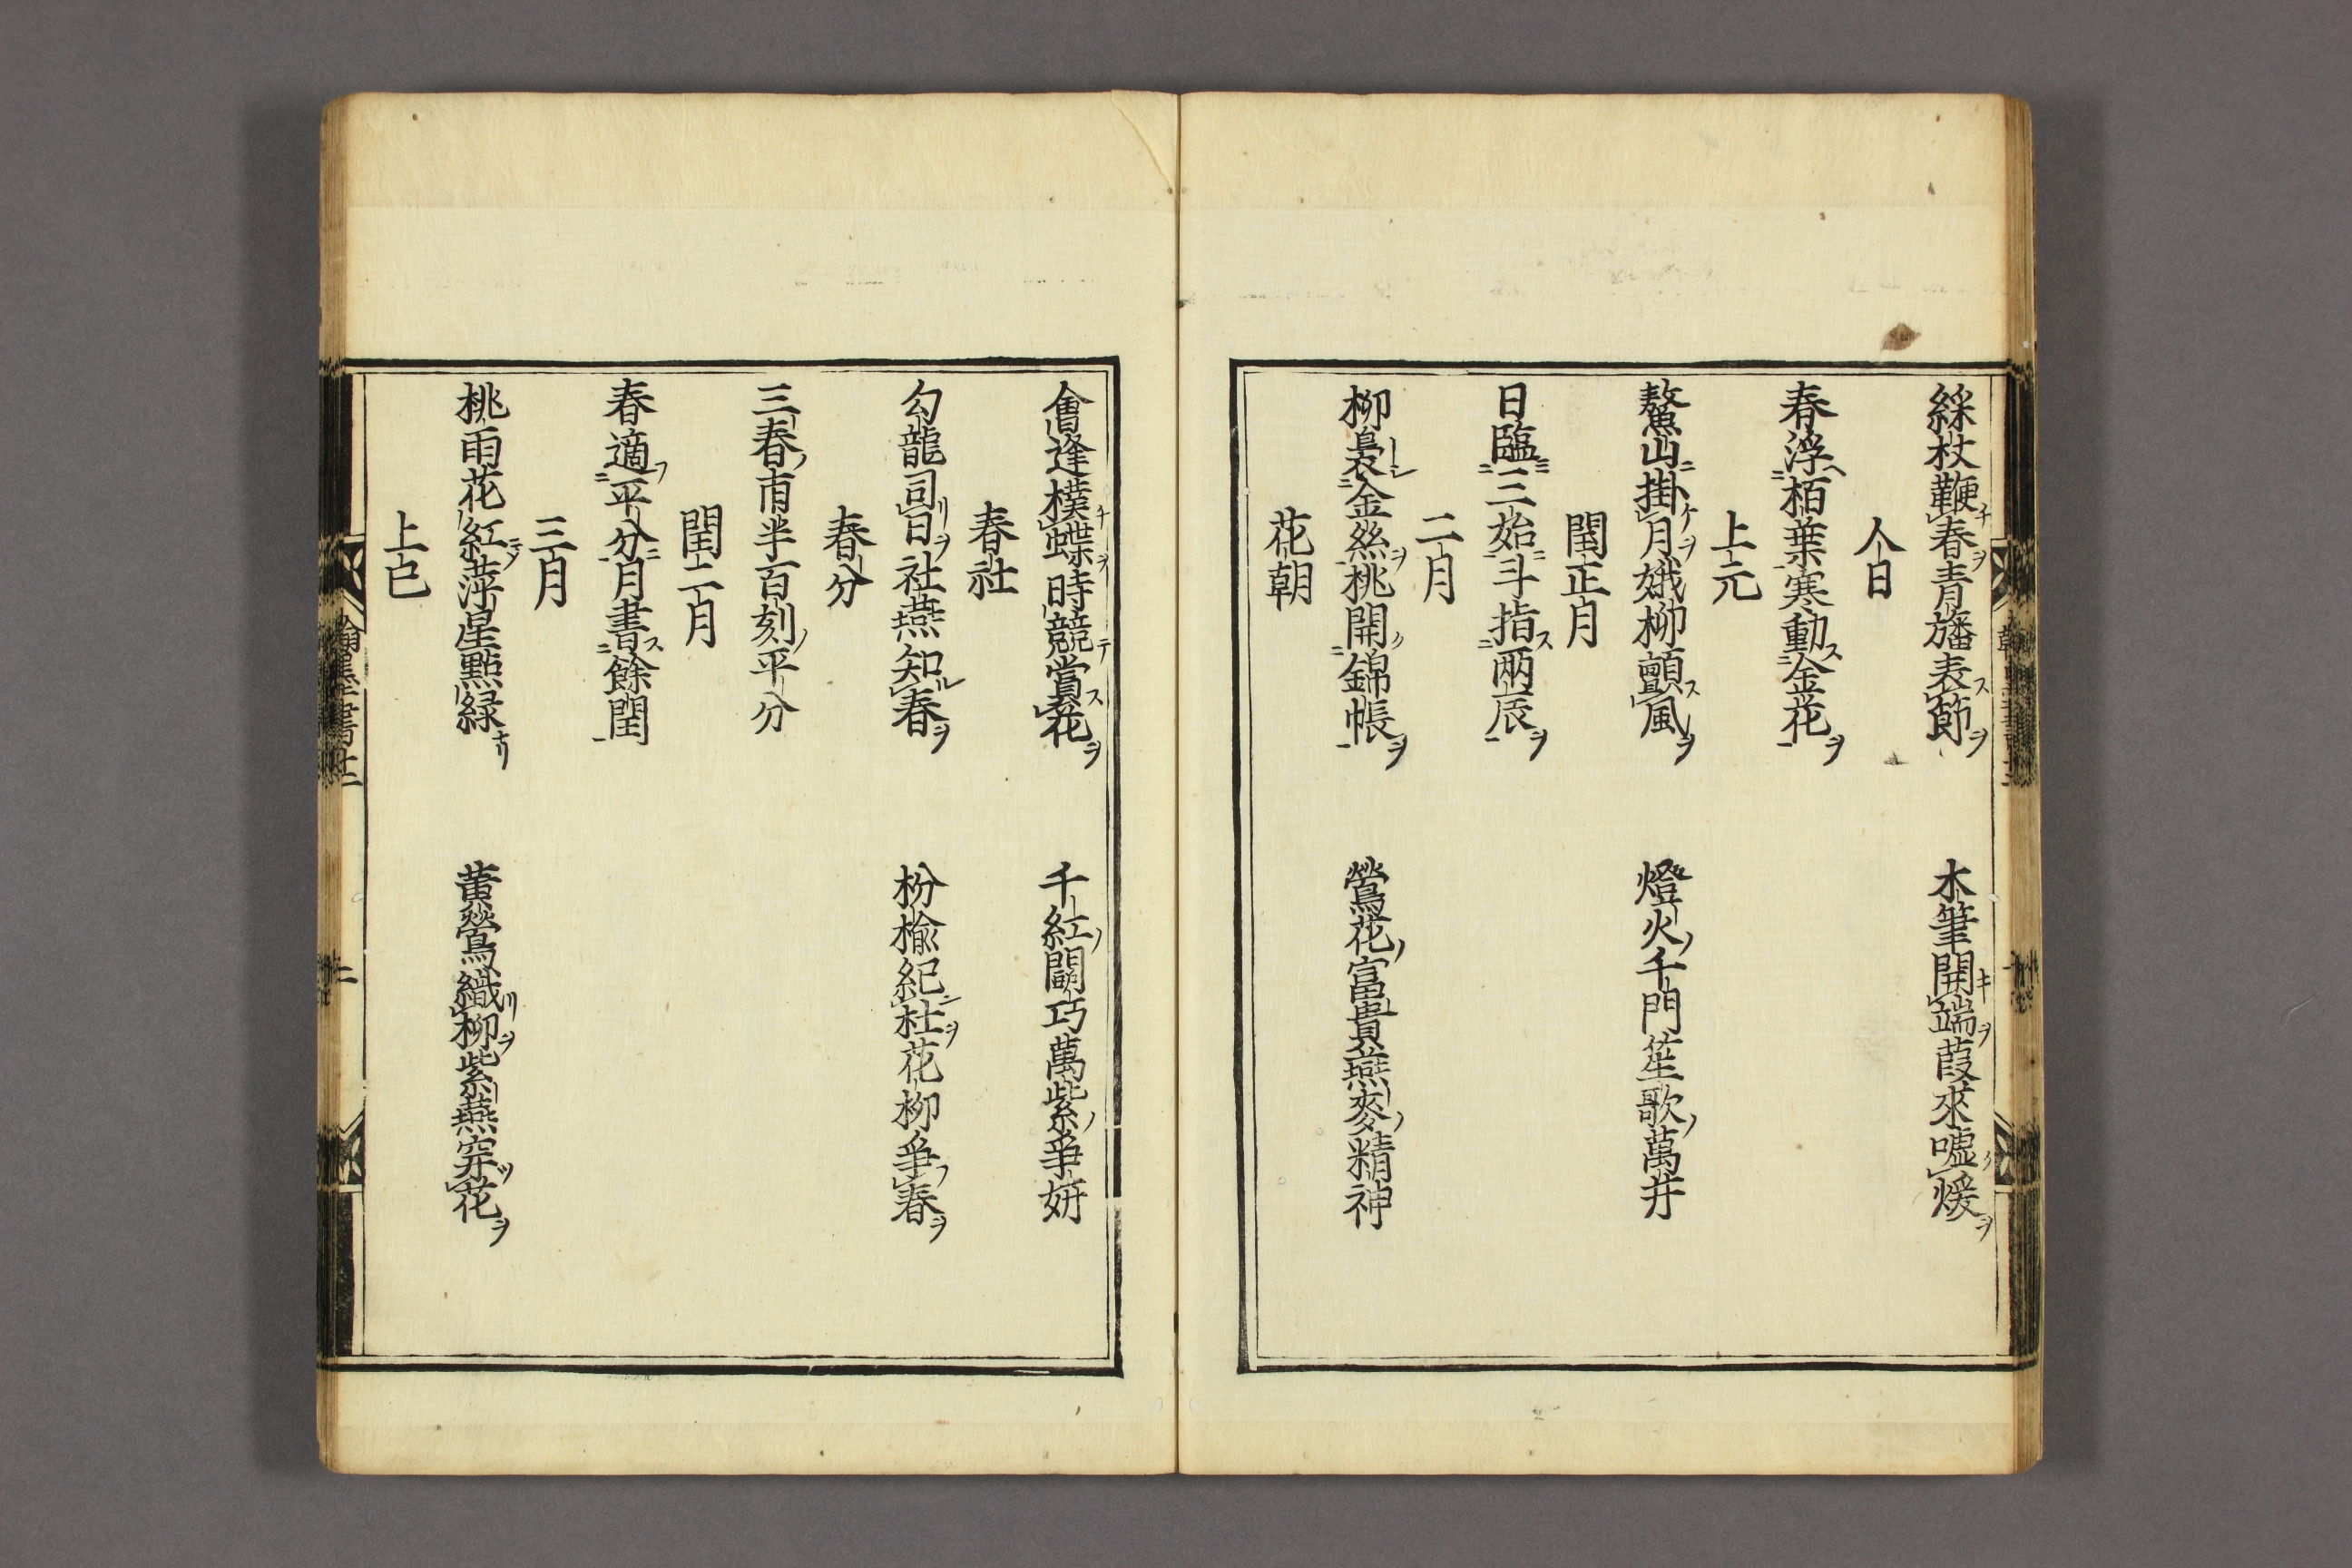 綵杖鞭春青旛表節　木筆開端葭灰噓煖
人日
春浮栢葉寒動金花
上元
鰲山掛月嫦柳顫風　燈火千門笙歌萬井
閏正月
日臨三始斗指兩辰
二月
柳裊金絲桃開錦帳　鶯花富貴燕麥精神
花朝
會逢撲蝶時競賞花　千紅鬪巧萬紫爭妍
春社
勾龍司日社燕知春　枌楡紀社花柳爭春
春分
三春甫半百刻平分
閏二月
春適平分月書餘閏
三月
桃雨花紅萍星點緑　黄鶯織柳紫燕穿花
上巳
翰墨全書廿二
二